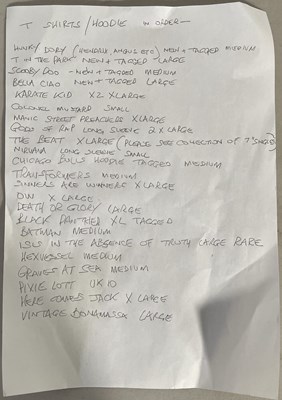 T SHIRTS / HOODIE IN ORDER-
HUNKY DORY (HENDRIX, ANGUS ETC) NEW + TAGGED MEDIUM
T IN THE PARK NEW + TAGGED XLARGE
SCOOBY DOO - NEW + TAGGED MEDIUM
BELLA CIAO NEW + TAGGED LARGE
KARATE KID X2 XLARGE
COLONEL MUSTARD SMALL
MANIC STREET PREACHERS XLARGE
GODS OF RAP LONG SLEEVE 2 X LARGE
THE BEAT XLARGE (PLEASE SEE CONDITION OF
NIRVANA LONG SLEEVE SMALL
CHICAGO BULLS HOODIE TAGGED MEDIUM
TRANSFORMERS MEDIUM
SINNERS ARE WINNERS XLARGE
X LARGE
DEATH OR GLORY LARGE
BLACK PANTHER XL TAGGED
BATMAN MEDIUM
ISIS IN THE ABSENCE OF TRUTH LARGE RARE
HEXVESSEL MEDIUM
GRAVES AT SEA MEDIUM
PIXIE LOTT UK 10
HERE COMES JACK X LARGE
VINTAGE BONAMASSA LARGE